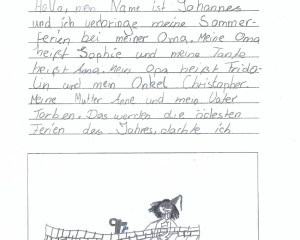 Hallo, mein Name ist Johannes
und ich verbringe meine Sommer-
ferien bei meiner Oma. Meine Oma
heißt Sophie und meine Tante
heißt Anna. Mein Opa heißt Frido-
lin und mein Onkel Christopher.
Meine Mutter Anne und mein Vater
Torben. Das werden die ödesten
Ferien des Jahres, dachte ich